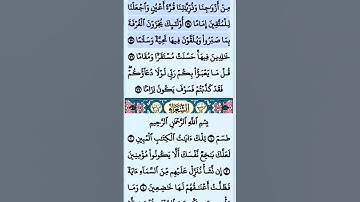 مِنْ أَزْوَٰجِنَا وَذُرِّيَّٰتِنَا قُرَّةَ أَعْيُنٍ وَٱجْعَلْنَا
لِلْمُتَّقِينَ إِمَامًا ۝ أُو۟لَٰٓئِكَ يُجْزَوْنَ ٱلْغُرْفَةَ
بِمَا صَبَرُوا۟ وَيُلَقَّوْنَ فِيهَا تَحِيَّةً وَسَلَٰمًا ۝
خَٰلِدِينَ فِيهَا ۚ حَسُنَتْ مُسْتَقَرًّا وَمُقَامًا ۝
قُلْ مَا يَعْبَؤُا۟ بِكُمْ رَبِّى لَوْلَا دُعَآؤُكُمْ ۖ
فَقَدْ كَذَّبْتُمْ فَسَوْفَ يَكُونُ لِزَامًۢا ۝
الشُّعَرَاء
بِسْمِ ٱللَّهِ ٱلرَّحْمَٰنِ ٱلرَّحِيمِ
طسٓمٓ ۝ تِلْكَ ءَايَٰتُ ٱلْكِتَٰبِ ٱلْمُبِينِ ۝
لَعَلَّكَ بَٰخِعٌ نَّفْسَكَ أَلَّا يَكُونُوا۟ مُؤْمِنِينَ
۝ إِن نَّشَأْ نُنَزِّلْ عَلَيْهِم مِّنَ ٱلسَّمَآءِ ءَايَةً
فَظَلَّتْ أَعْنَٰقُهُمْ لَهَا خَٰضِعِينَ ۝ وَمَا